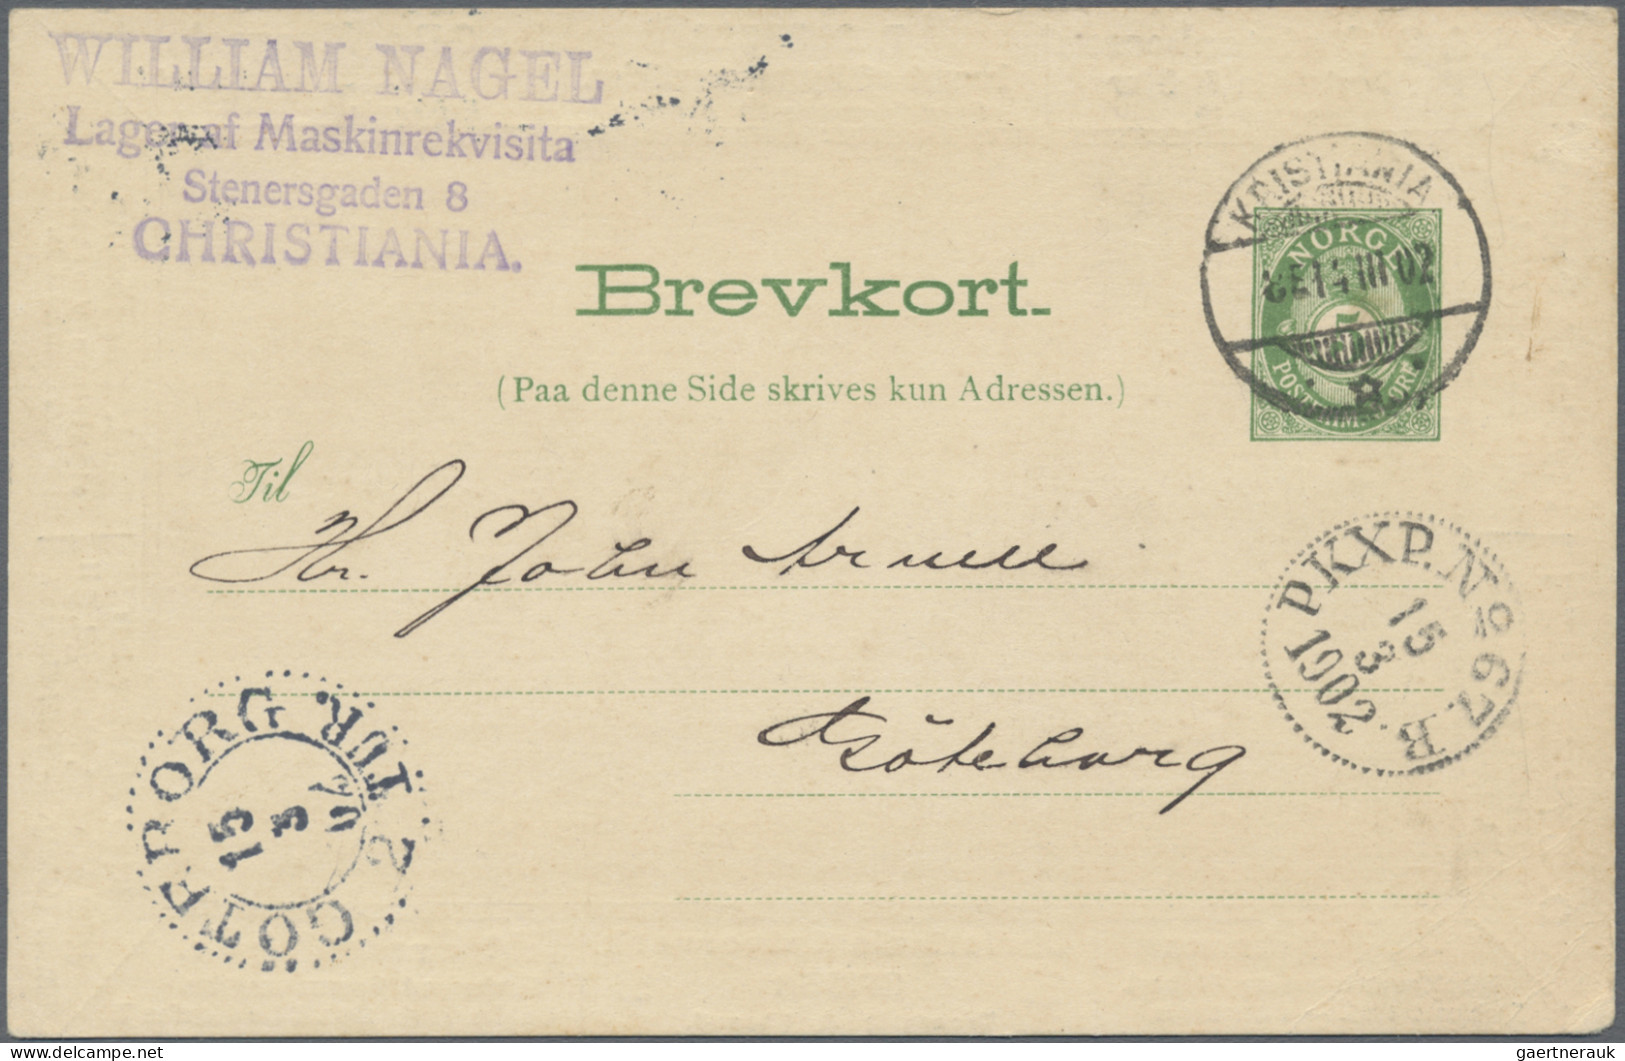 WILLIAM NAGEL
Lager af Maskinrekvisita
Stenersgaden 8
CHRISTIANIA.
KRISTIANIA
14 III 02
NORGE
5
POSTFRIM. ØRE
Brevkort.
(Paa denne Side skrives kun Adressen.)
Til
Hr. John Arnell
Göteborg
PKXP. No 67.B
15
3
1902
GÖTEBORG 2 TUR
15
3
02
delcampe.net
gaertnerauk